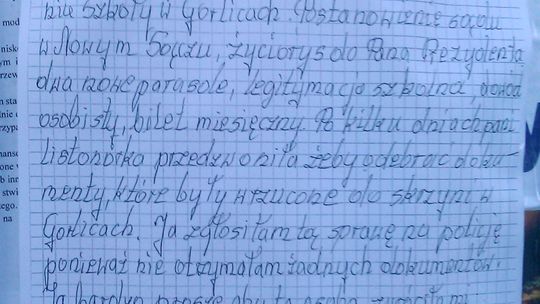 nie szkoły w Gorlicach. Postanowienie sądu
w Nowym Sączu, życiorys do Pana Prezydenta
dwa nowe parasole, legitymacja szkolna, dowód
osobisty, bilet miesięczny. Po kilku dniach pani
listonoszka przedzwoniła żeby odebrać doku-
menty, które były wrzucone do skrzyni w
Gorlicach. Ja zgłosiłam tą sprawę na policję
ponieważ nie otrzymałam żadnych dokumentów.
Ja bardzo proszę aby ta osoba